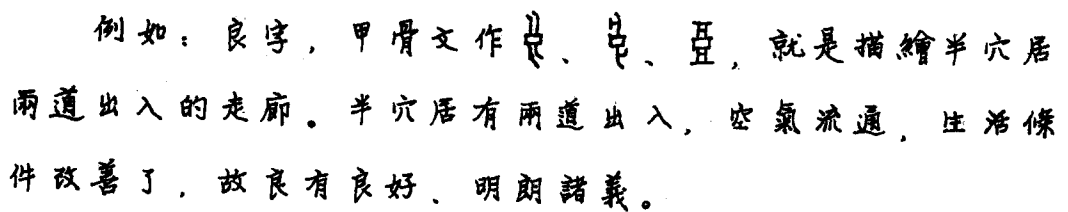 例如：良字，甲骨文作、、，就是描繪半穴居
兩道出入的走廊。半穴居有兩道出入，空氣流通，生活條
件改善了，故良有良好、明朗諸義。